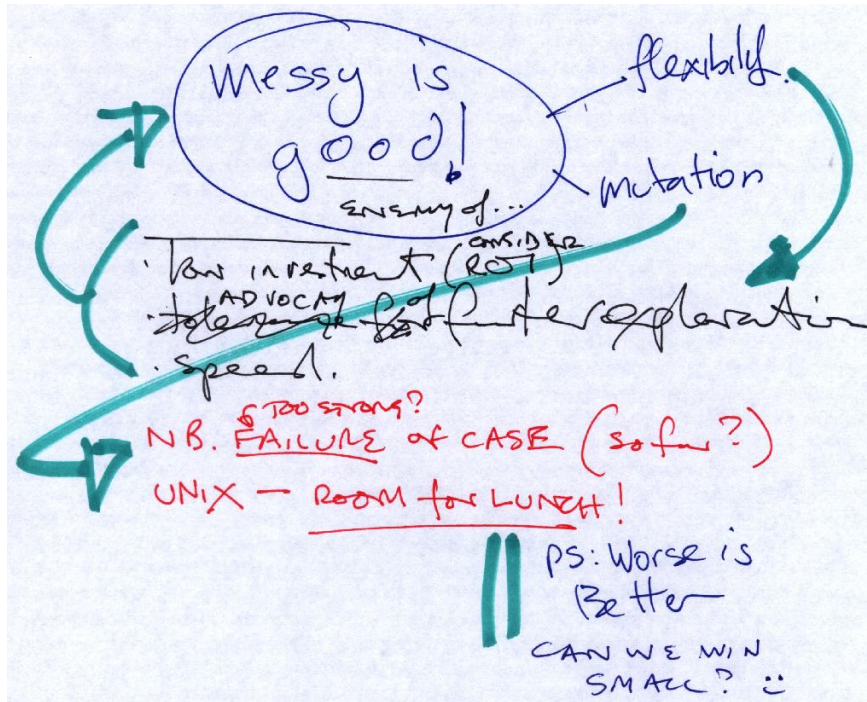 messy is
good!
flexibility
mutation
enemy of...
· Low investment (CONSIDER ROI)
· ADVOCACY of further exploration
· speed.
TOO STRONG?
NB FAILURE of CASE (so far?)
UNIX – ROOM for LUNCH!
PS: Worse is
Better
CAN WE WIN
SMALL? :)